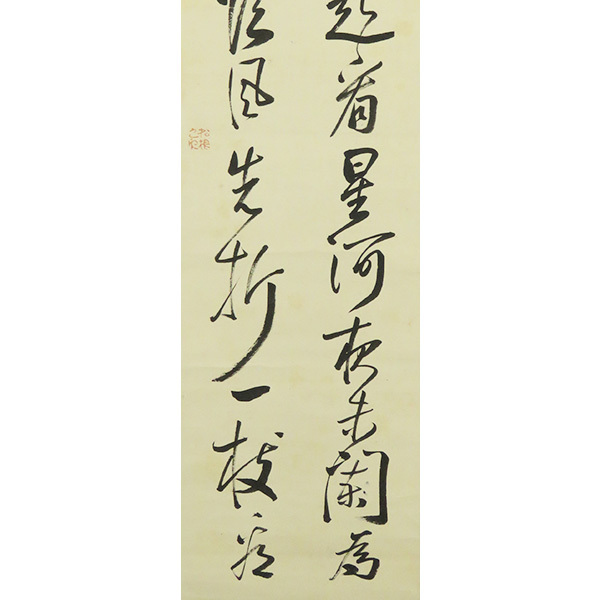 起看星河夜未闌為
風先折一枝看